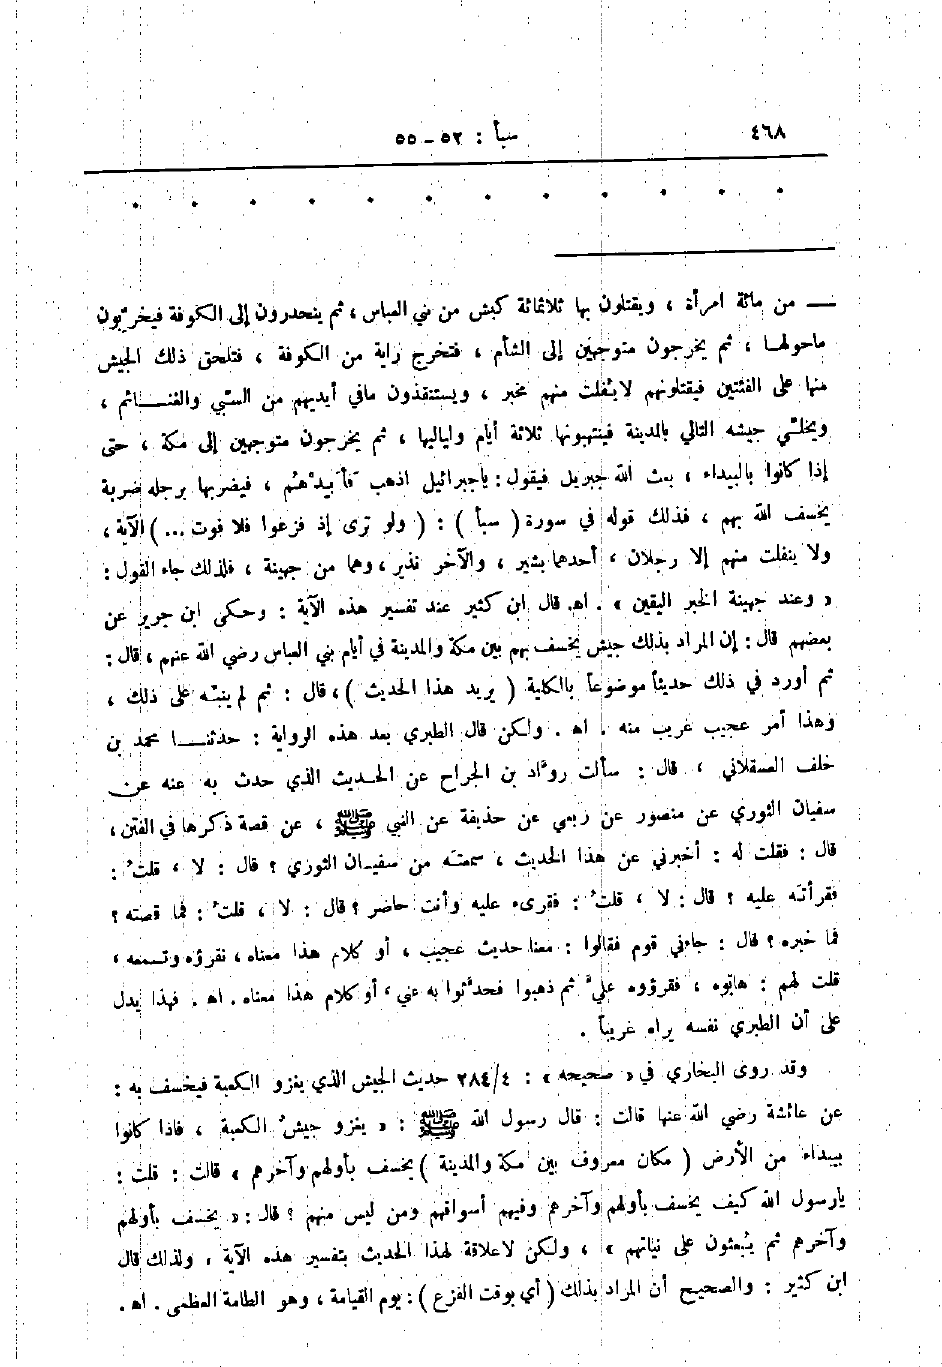 ٤٦٨
سبأ : ٥٢ ـ ٥٥
ــ من مائة امرأة ، ويقتلون بها ثلاثمائة كبش من بني العباس ، ثم ينحدرون إلى الكوفة فيخرّبون
ماحولهـا ، ثم يخرجون متوجهين إلى الشأم ، فتخرج راية من الكوفة ، فتلحق ذلك الجيش
منها على الفئتين فيقتلونهم لايُفلت منهم مخبر ، ويستنقذون مافي أيديهم من السّبي والغنـــائم ،
ويخلّي جيشه التالي بالمدينة فينتهبونها ثلاثة أيام ولياليها ، ثم يخرجون متوجهين إلى مكة ، حتى
إذا كانوا بالبيداء ، بعث الله جبريل فيقول : ياجبرائيل اذهب فأَبيدْهُم ، فيضربها برجله ضربة
يخسف الله بهم ، فذلك قوله في سورة ( سبأ ) : ( ولو ترى إذ فزعوا فلا فوت ... ) الآية ،
ولا ينفلت منهم إلا رجلان ، أحدهما بشير ، والآخر نذير ، وهما من جهينة ، فلذلك جاء القول :
« وعند جهينة الخبر اليقين » . اهـ. قال ابن كثير عند تفسير هذه الآية : وحكى ابن جرير عن
بعضهم قال : إن المراد بذلك جيش يخسف بهم بين مكة والمدينة في أيام بني العباس رضي الله عنهم ، قال :
ثم أورد في ذلك حديثاً موضوعاً بالكلية ( يريد هذا الحديث ) ، قال : ثم لم ينبّه على ذلك ،
وهذا أمر عجيب غريب منه . اهـ . ولكن قال الطبري بعد هذه الرواية : حدثنـــا محمد بن
خلف العسقلاني ، قال : سألت روّاد بن الجراح عن الحـديث الذي حدث به عنه عن
سفيان الثوري عن منصور عن ربعي عن حذيفة عن النبي ﷺ ، عن قصة ذكرها في الفتن ،
قال : فقلت له : أخبرني عن هذا الحديث ، سمعتَه من سفيـان الثوري ؟ قال : لا ، قلتُ :
فقرأتَه عليه ؟ قال : لا ، قلتُ : فقرىء عليه وأنت حاضر ؟ قال : لا ، قلتُ : فما قصته ؟
فما خبره ؟ قال : جاءني قوم فقالوا : معنا حديث عجيب ، أو كلام هذا معناه ، نقرؤه وتسمعه ،
قلت لهم : هاتوه ، فقرؤوه عليّ ثم ذهبوا فحدّثوا به عني ، أو كلام هذا معناه . اهـ . فهذا يدل
على أن الطبري نفسه يراه غريباً .
وقد روى البخاري في « صحيحه » : ٢٨٤/٤ حديث الجيش الذي يغزو الكعبة فيخسف به :
عن عائشة رضي الله عنها قالت : قال رسول الله ﷺ : « يغزو جيشُ الكعبة ، فاذا كانوا
ببيداء من الأرض ( مكان معروف بين مكة والمدينة ) يخسف بأولهم وآخرهم » قالت : قلت :
يارسول الله كيف يخسف بأولهم وآخرهم وفيهم أسواقهم ومن ليس منهم ؟ قال : « يخسف بأولهم
وآخرهم ثم يُبعثون على نياتهم » ، ولكن لاعلاقة لهذا الحديث بتفسير هذه الآية ، ولذلك قال
ابن كثير : والصحيح أن المراد بذلك ( أي بوقت الفزع ) : يوم القيامة ، وهو الطامة العظمى . اهـ .